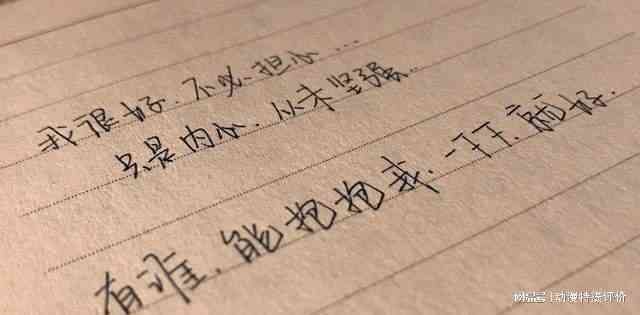 我很好.不必担心...
只是内心.从未坚强..
有谁.能抱抱我.一下下.就好.
动漫特漫评价